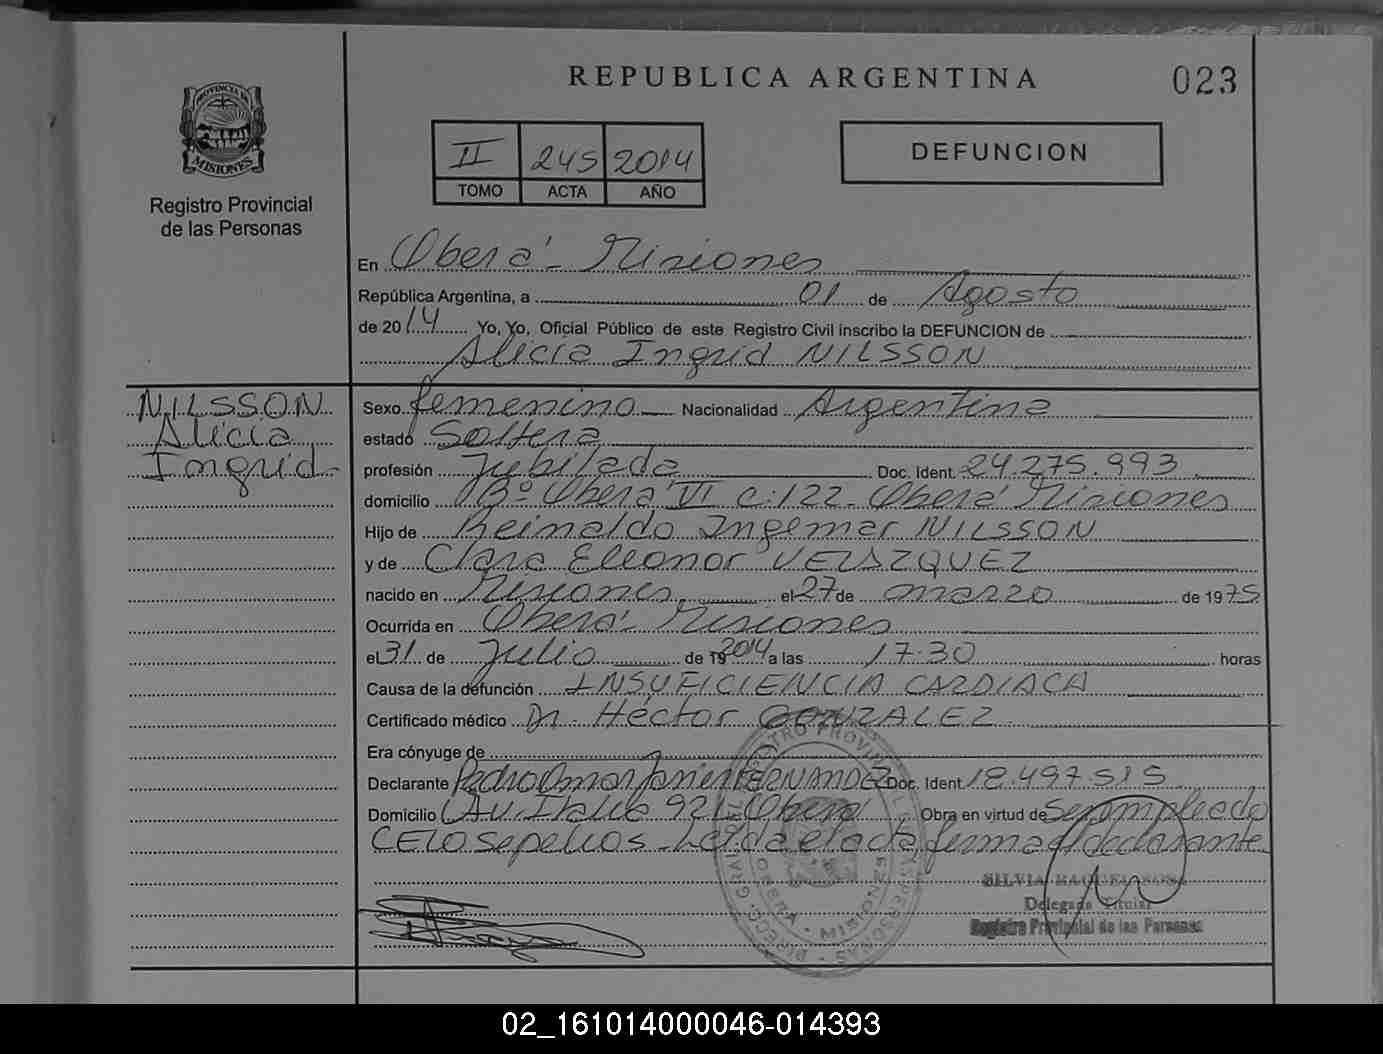 REPUBLICA ARGENTINA
023
PROVINCIA DE
MISIONES
Registro Provincial
de las Personas
II 245 2014
TOMO ACTA AÑO
DEFUNCION
En Oberá - Misiones
República Argentina, a 01 de Agosto
de 2014 Yo, Yo, Oficial Público de este Registro Civil inscribo la DEFUNCION de
Alicia Ingrid NILSSON
NILSSON
Alicia
Ingrid-
Sexo femenino Nacionalidad Argentina
estado Soltera
profesión Jubilada Doc. Ident. 24.275.993
domicilio Bº Oberá VI C:122- Oberá Misiones
Hijo de Reinaldo Ingemar NILSSON
y de Clara Eleonor VELAZQUEZ
nacido en Misiones el 27 de marzo de 1975
Ocurrida en Oberá - Misiones
el 31 de Julio de 19 2014 a las 17:30 horas
Causa de la defunción INSUFICIENCIA CARDIACA
Certificado médico Dr. Héctor GONZALEZ
Era cónyuge de
Declarante Pedro Omar Javier FERNANDEZ Doc. Ident. 18.497.515
Domicilio Av. Italia 921 Oberá Obra en virtud de Ser empleado
CELO Sepelios - Leída el acta firma el declarante
OBERA - MISIONES
SILVIA RAQUEL SOSA
Delegada Titular
Registro Provincial de las Personas
02_161014000046-014393